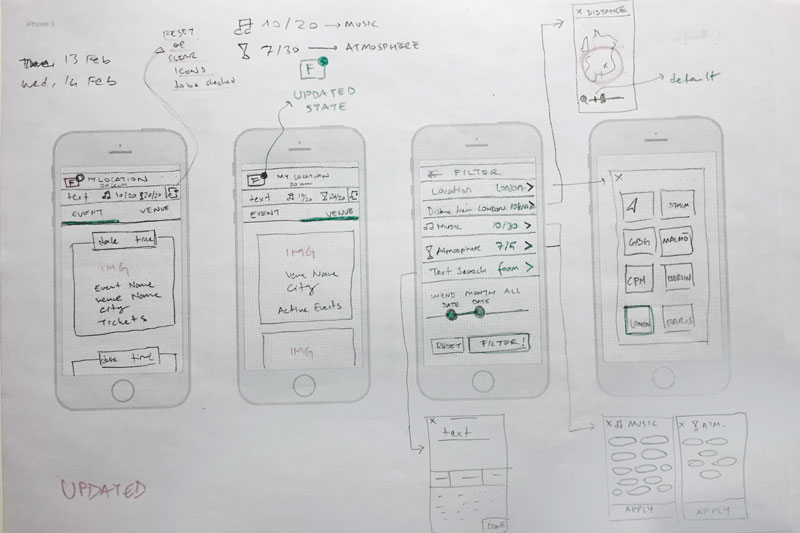 iPhone 5
13 Feb
Wed, 14 Feb
RESET
OR
CLEAR
ICONS
to be decided
10/20 → MUSIC
7/30 → ATMOSPHERE
F
UPDATED
STATE
X DISTANCE
default
F MY LOCATION
20 km
text 10/20 20/20
EVENT VENUE
date time
IMG
Event Name
Venue Name
City
Tickets
date time
F MY LOCATION
20 km
text
EVENT VENUE
IMG
Venue Name
City
Active Events
IMG
← FILTER
Location London >
Distance from LONDON >
Music 10/20 >
Atmosphere 7/5 >
Text Search foam >
WKND MONTH ALL
DATE DATE
RESET FILTER!
X
STHLM
GBG MALMÖ
CPH BERLIN
LONDON PARIS
X
text
DONE
X MUSIC
APPLY
X ATM.
APPLY
UPDATED